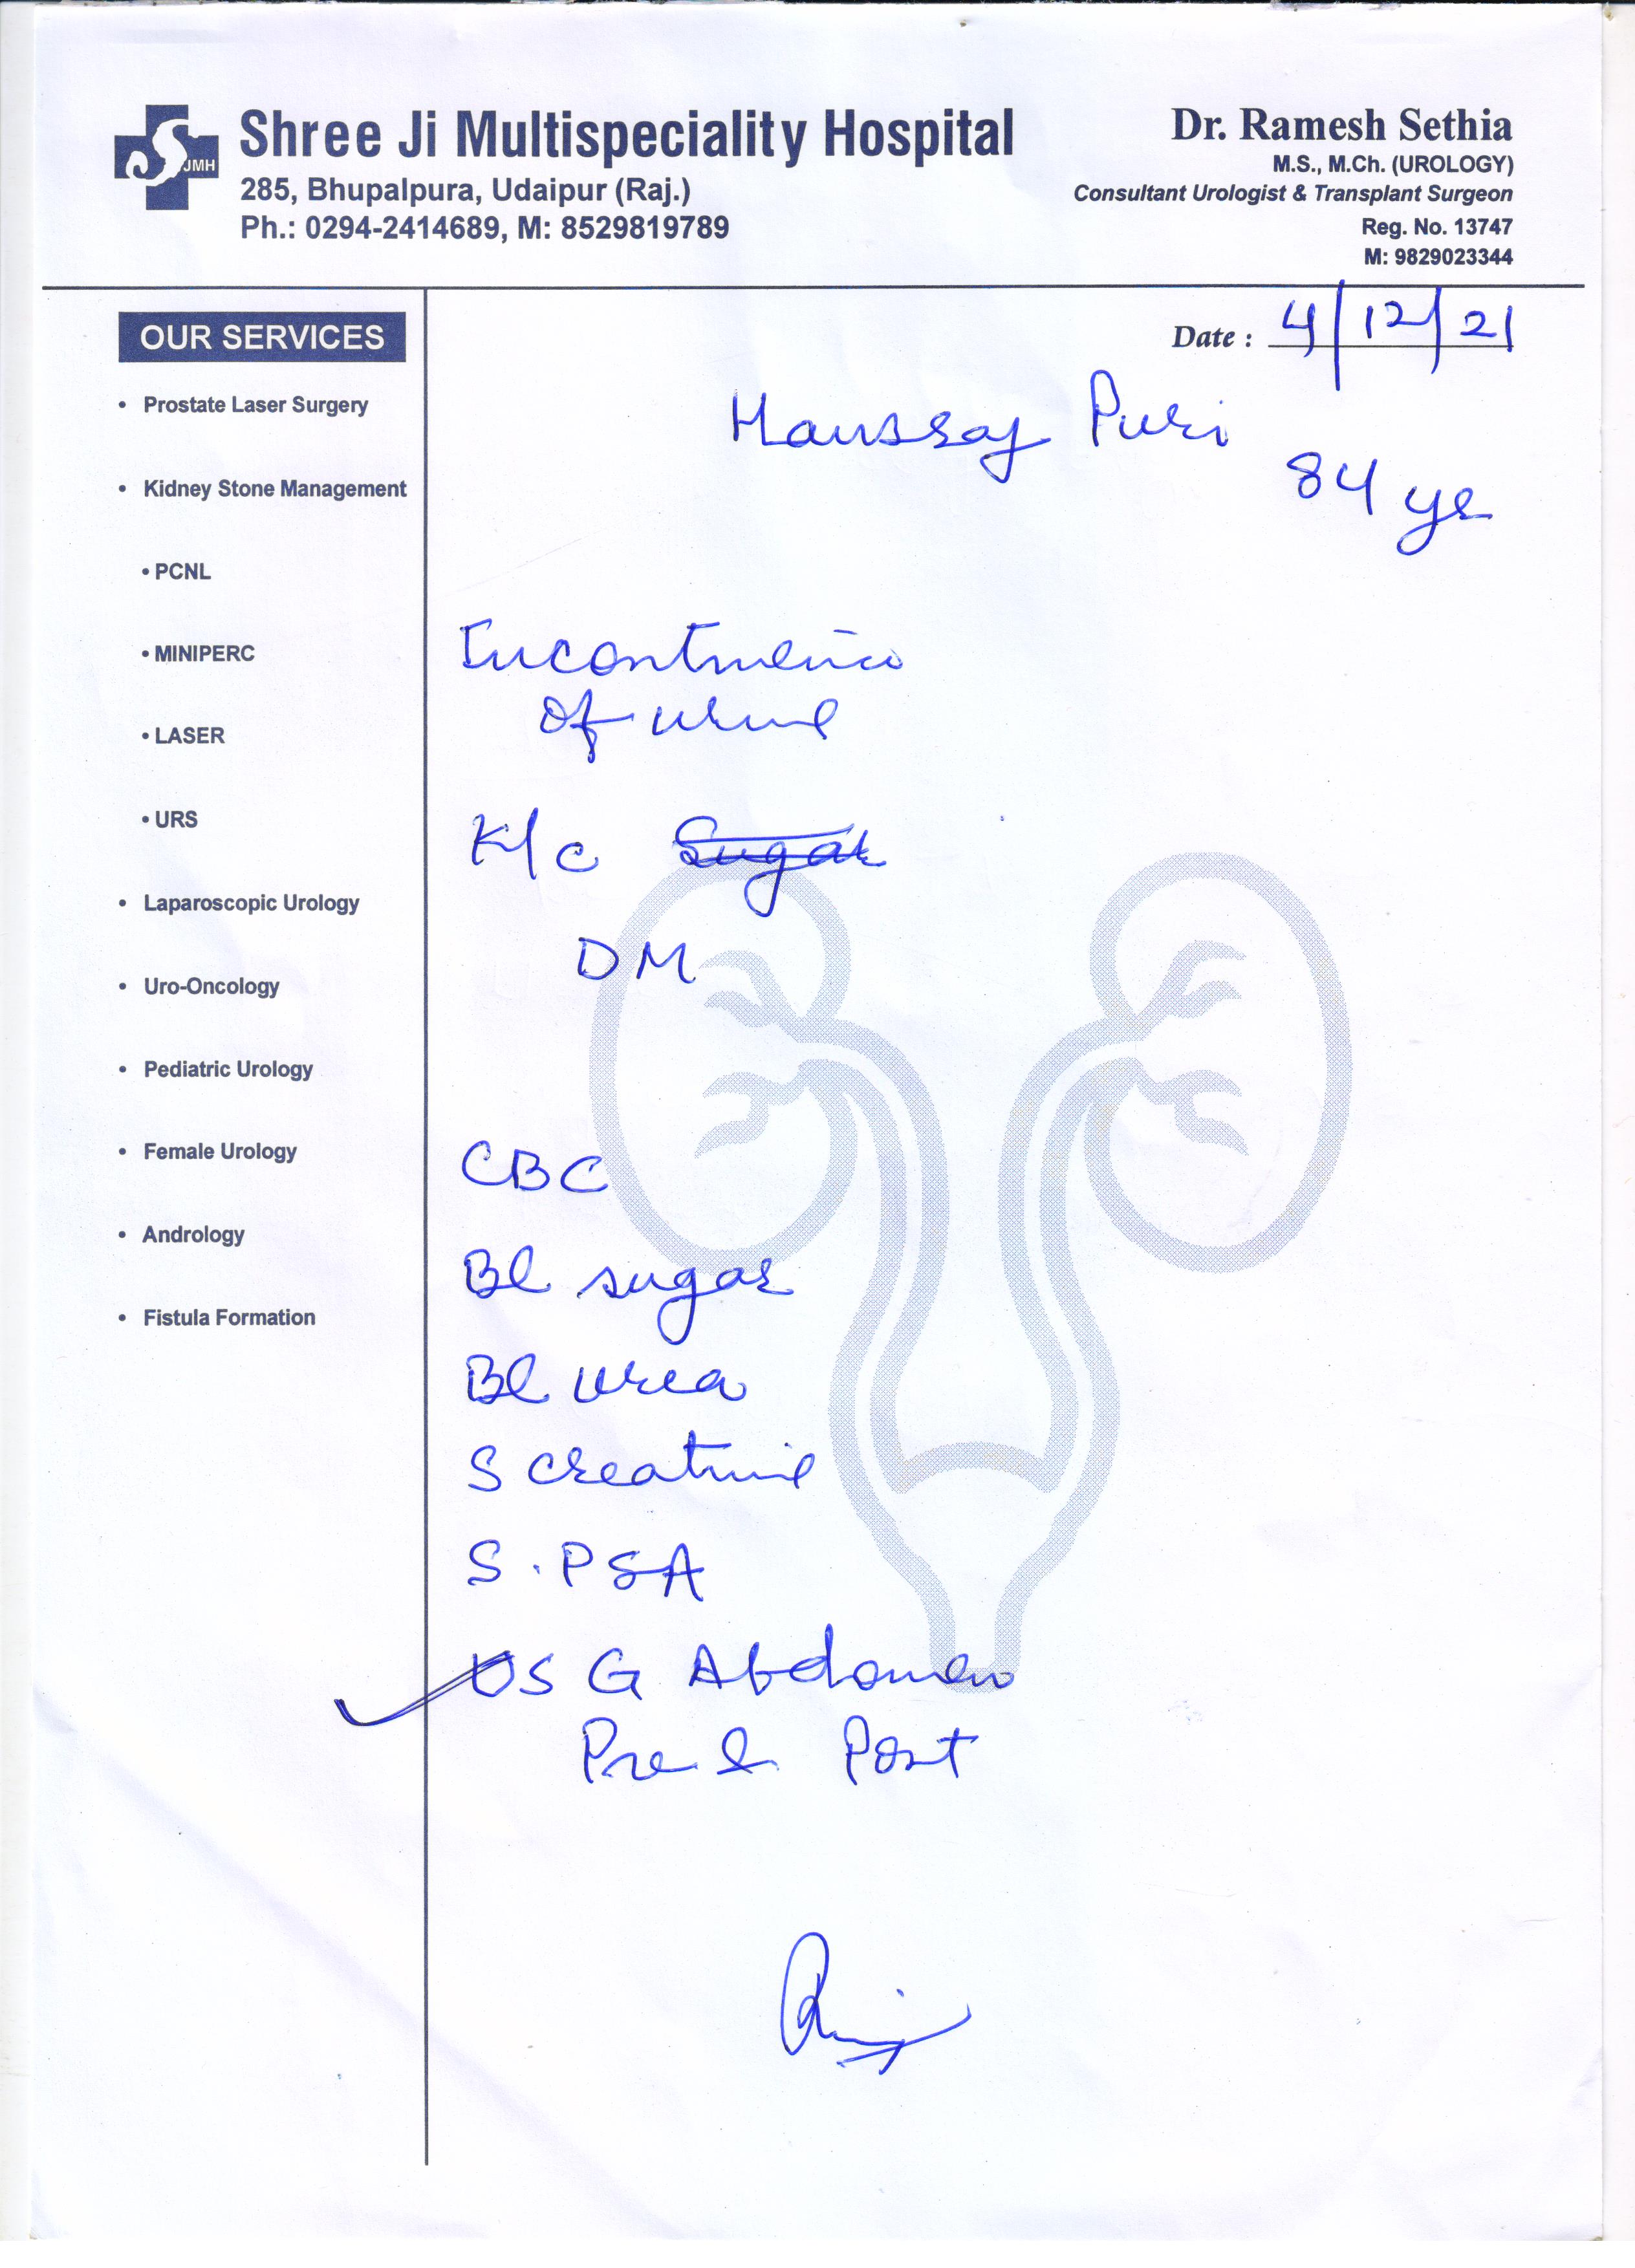 JMH
Shree Ji Multispeciality Hospital
285, Bhupalpura, Udaipur (Raj.)
Ph.: 0294-2414689, M: 8529819789
Dr. Ramesh Sethia
M.S., M.Ch. (UROLOGY)
Consultant Urologist & Transplant Surgeon
Reg. No. 13747
M: 9829023344
OUR SERVICES
• Prostate Laser Surgery
• Kidney Stone Management
• PCNL
• MINIPERC
• LASER
• URS
• Laparoscopic Urology
• Uro-Oncology
• Pediatric Urology
• Female Urology
• Andrology
• Fistula Formation
Date : 4/12/21
Hansraj Puri
84 yr
Incontinence
of urine
K/c Sugar
DM
CBC
Bl sugar
Bl urea
S creatinine
S. PSA
USG Abdomen
Pre & Post